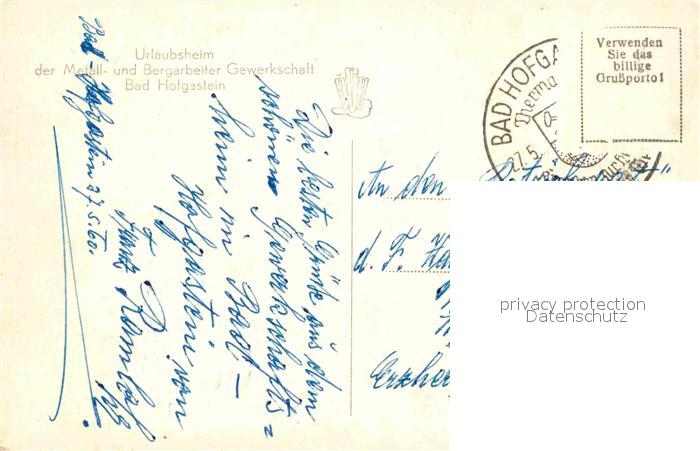 Urlaubsheim
der Metall- und Bergarbeiter Gewerkschaft
Bad Hofgastein
Verwenden
Sie das
billige
Grußporto!
BAD HOFGA
Therma
27.5.
Bad-Hofgastein 27.5.60.
Die besten Grüße aus dem
schönen Gewerkschafts=
heim in Bad-
Hofgastein von
Franz
An den
d. F.
Erzher
privacy protection
Datenschutz